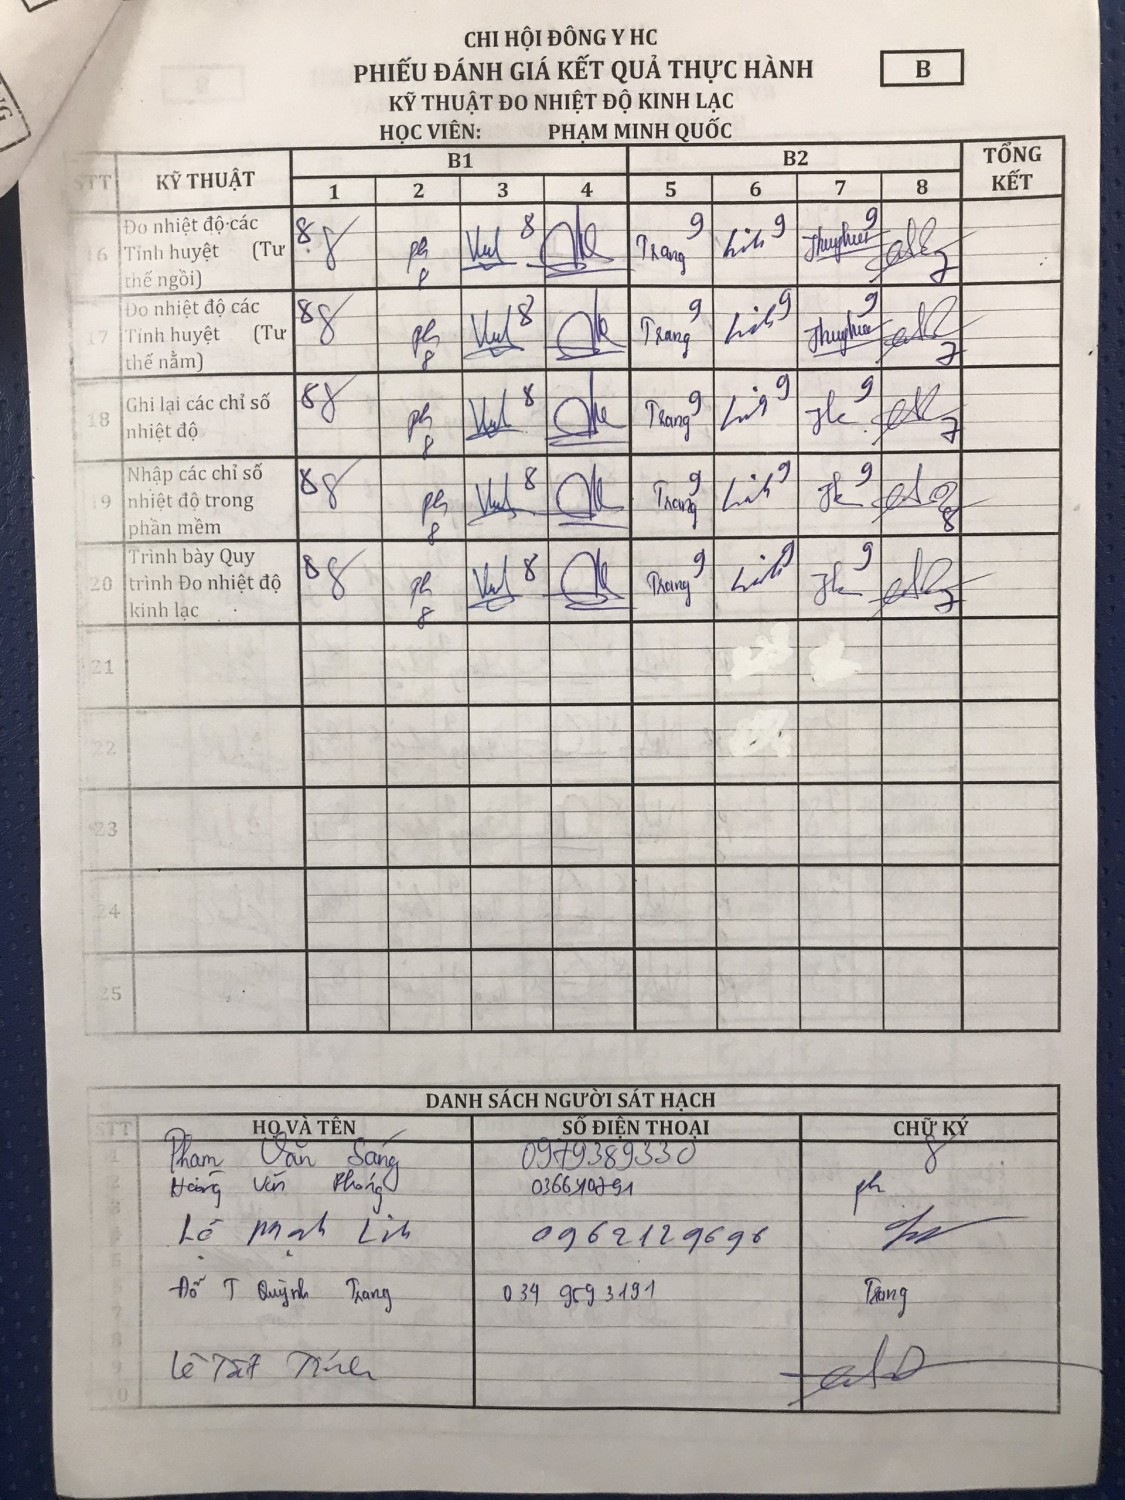 CHI HỘI ĐÔNG Y HC
PHIẾU ĐÁNH GIÁ KẾT QUẢ THỰC HÀNH
B
KỸ THUẬT ĐO NHIỆT ĐỘ KINH LẠC
HỌC VIÊN: PHẠM MINH QUỐC
STT KỸ THUẬT B1 B2 TỔNG KẾT
1 2 3 4 5 6 7 8
16 Đo nhiệt độ các Tỉnh huyệt (Tư thế ngồi) 8 8 ph 8 8 Trang 9 Linh 9 9 7
17 Đo nhiệt độ các Tỉnh huyệt (Tư thế nằm) 8 8 ph 8 8 Trang 9 Linh 9 9 7
18 Ghi lại các chỉ số nhiệt độ 8 8 ph 8 8 Trang 9 Linh 9 9 7
19 Nhập các chỉ số nhiệt độ trong phần mềm 8 8 ph 8 8 Trang 9 Linh 9 9 8
20 Trình bày Quy trình Đo nhiệt độ kinh lạc 8 8 ph 8 8 Trang 9 Linh 9 9 7
21
22
23
24
25
DANH SÁCH NGƯỜI SÁT HẠCH
STT HỌ VÀ TÊN SỐ ĐIỆN THOẠI CHỮ KÝ
1 Phạm Văn Sáng 0979389330
2 Hoàng Văn Phóng ph
3
4 Lê Mạnh Linh 0962129696
5
6 Đỗ T Quỳnh Trang 034 9593191 Trang
7
8
9 Lê Tất
10